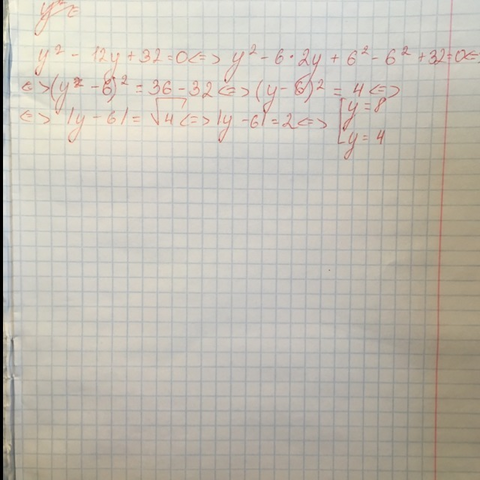 y² =
y² - 12y + 32 = 0 <=> y² - 6 · 2y + 6² - 6² + 32 = 0 <=>
<=> (y - 6)² = 36 - 32 <=> (y - 6)² = 4 <=>
<=> |y - 6| = √4 <=> |y - 6| = 2 <=> [y = 8
[y = 4